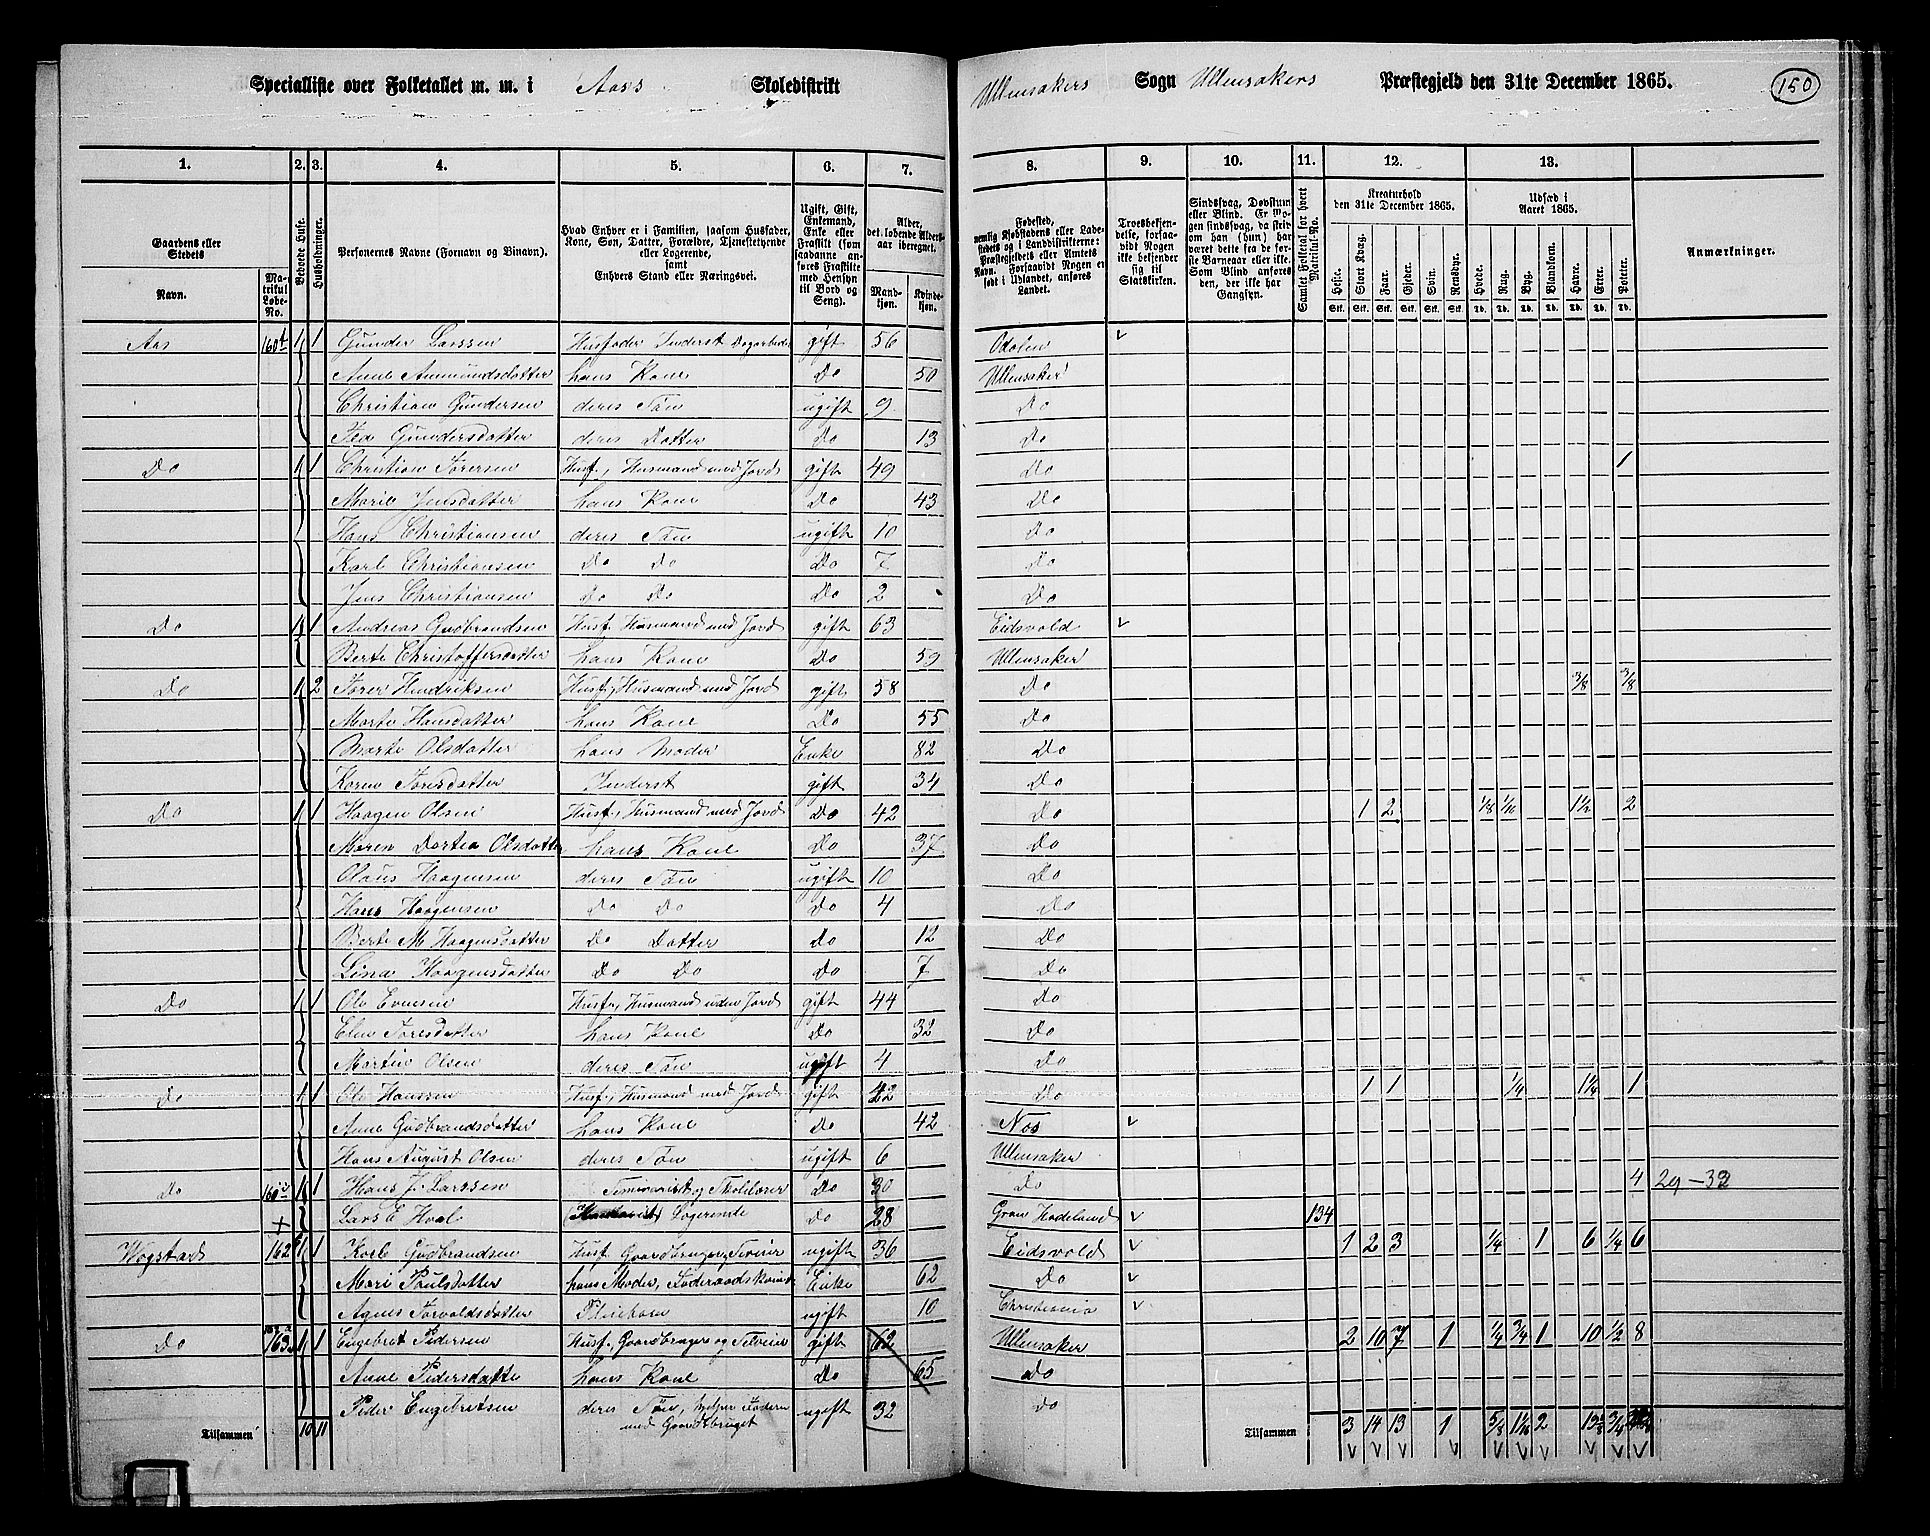 Specialliste over Folketallet m. m. i Aas Skoledistrikt Ullensakers Sogn Ullensakers Præstegjeld den 31te December 1865. 150
1. 2. 3. 4. 5. 6. 7. 8. 9. 10. 11. 12. 13.
Gaardens eller Stedets
Navn.
Matrikul Løbe-No.
Beboede Huse.
Husholdninger.
Personernes Navne (Fornavn og Binavn).
Hvad Enhver er i Familien, saasom Husfader, Kone, Søn, Datter, Forældre, Tjenestetyende eller Logerende, samt Enhvers Stand eller Næringsvei.
Ugift, Gift, Enkemand, Enke eller Fraskilt (som saadanne anføres Fraskilte med Hensyn til Bord og Seng).
Alder, det løbende Aldersaar iberegnet.
Mandkjøn. Kvindekjøn.
Fødested, nemlig Kjøbstadens eller Ladestedets og i Landdistrikterne: Præstegjeldets eller Amtets Navn. Forsaavidt Nogen er født i Udlandet, anføres Landet.
Troesbekjendelse, forsaavidt Nogen ikke bekjender sig til Statskirken.
Sindssvag, Døvstum eller Blind. Er Nogen sindssvag, da skrives om han (hun) har været dette fra de første Barneaar eller ikke. Som Blind anføres den, der ikke har Gangsyn.
Samlet Folketal for hvert Matrikul-No.
Kreaturhold den 31te December 1865.
Heste. Stort Kvæg. Faar. Gjeder. Svin. Rensdyr.
Udsæd i Aaret 1865.
Hvede. Rug. Byg. Blandkorn. Havre. Erter. Poteter.
Anmærkninger.
Aas 160t 1 1 Gunder Larssen Husfader Inderst Dagarbeider gift 56 Odalen
Anne Ammundsdatter hans Kone Do 50 Ullensaker
Christian Gundersen deres Søn ugift 9 Do
Gundersdatter deres Datter Do 13 Do
Do 1 1 Christian Torersen Husf., Husmand med Jord gift 49 Do 1
Marie Jensdatter hans Kone Do 43 Do
Hans Christiansen deres Søn ugift 10 Do
Karl Christiansen Do Do Do 7 Do
Jens Christiansen Do Do Do 2 Do
Do 1 1 Andreas Gudbrandsen Husf. Husmand med Jord gift 63 Eidsvold
Berte Christoffersdatter hans Kone Do 59 Ullensaker
Do 1 2 Torer Hendriksen Husf., Husmand med Jord gift 58 Do 3/8 3/8
Marte Hansdatter hans Kone Do 55 Do
Marte Olsdatter hans Moder Enke 82 Do
Karen Toresdatter Inderst gift 34 Do
Do 1 1 Haagen Olsen Husf., Husmand med Jord Do 42 Do 1 2 1/8 1/16 1 1/2 2
Maren Dortea Olsdatter hans Kone Do 37 Do
Olaus Haagensen deres Søn ugift 10 Do
Hans Haagensen Do Do Do 4 Do
Berte M Haagensdatter Do Datter Do 12 Do
Lina Haagensdatter Do Do Do 7 Do
Do 1 1 Ole Evensen Husf., Husmand uden Jord gift 44 Do
Elen Toresdatter hans Kone Do 32 Do
Martin Olsen deres Søn ugift 4 Do
Do 1 1 Ole Hanssen Husf., Husmand med Jord gift 42 Do 1 1 1/4 1 1/4 1
Anne Gudbrandsdatter hans Kone Do 42 Næs
Hans August Olsen deres Søn ugift 6 Ullensaker
Do 160 1 1 Hans J. Larssen Seminarist og Skolelærer Do 30 Do 4 29-32
Lars E Hval Logerende Do 28 Gran Hadeland 134
Wogstad 162 1 1 Karl Gudbrandsen Husf Gaardbruger, Selveier ugift 36 Eidsvold 1 2 3 1/4 1 6 1/4 6
Mari Paulsdatter hans Moder, Føderaadskone Enke 62 Do
Agnes Torvaldsdatter Pleiebarn ugift 10 Christiania
Do 163a 1 1 Engebret Pedersen Husf., Gaardbruger og Selveier gift 62 Ullensaker 2 10 7 1 1/4 3/4 1 10 1/2 8
Anne Pedersdatter hans Kone Do 65 Do
Peder Engebretsen deres Søn, hjelper Faderen med Gaardsbruget ugift 32 Do
Tilsammen 10 11 Tilsammen 3 14 13 1 5/8 1 1/16 2 3/4